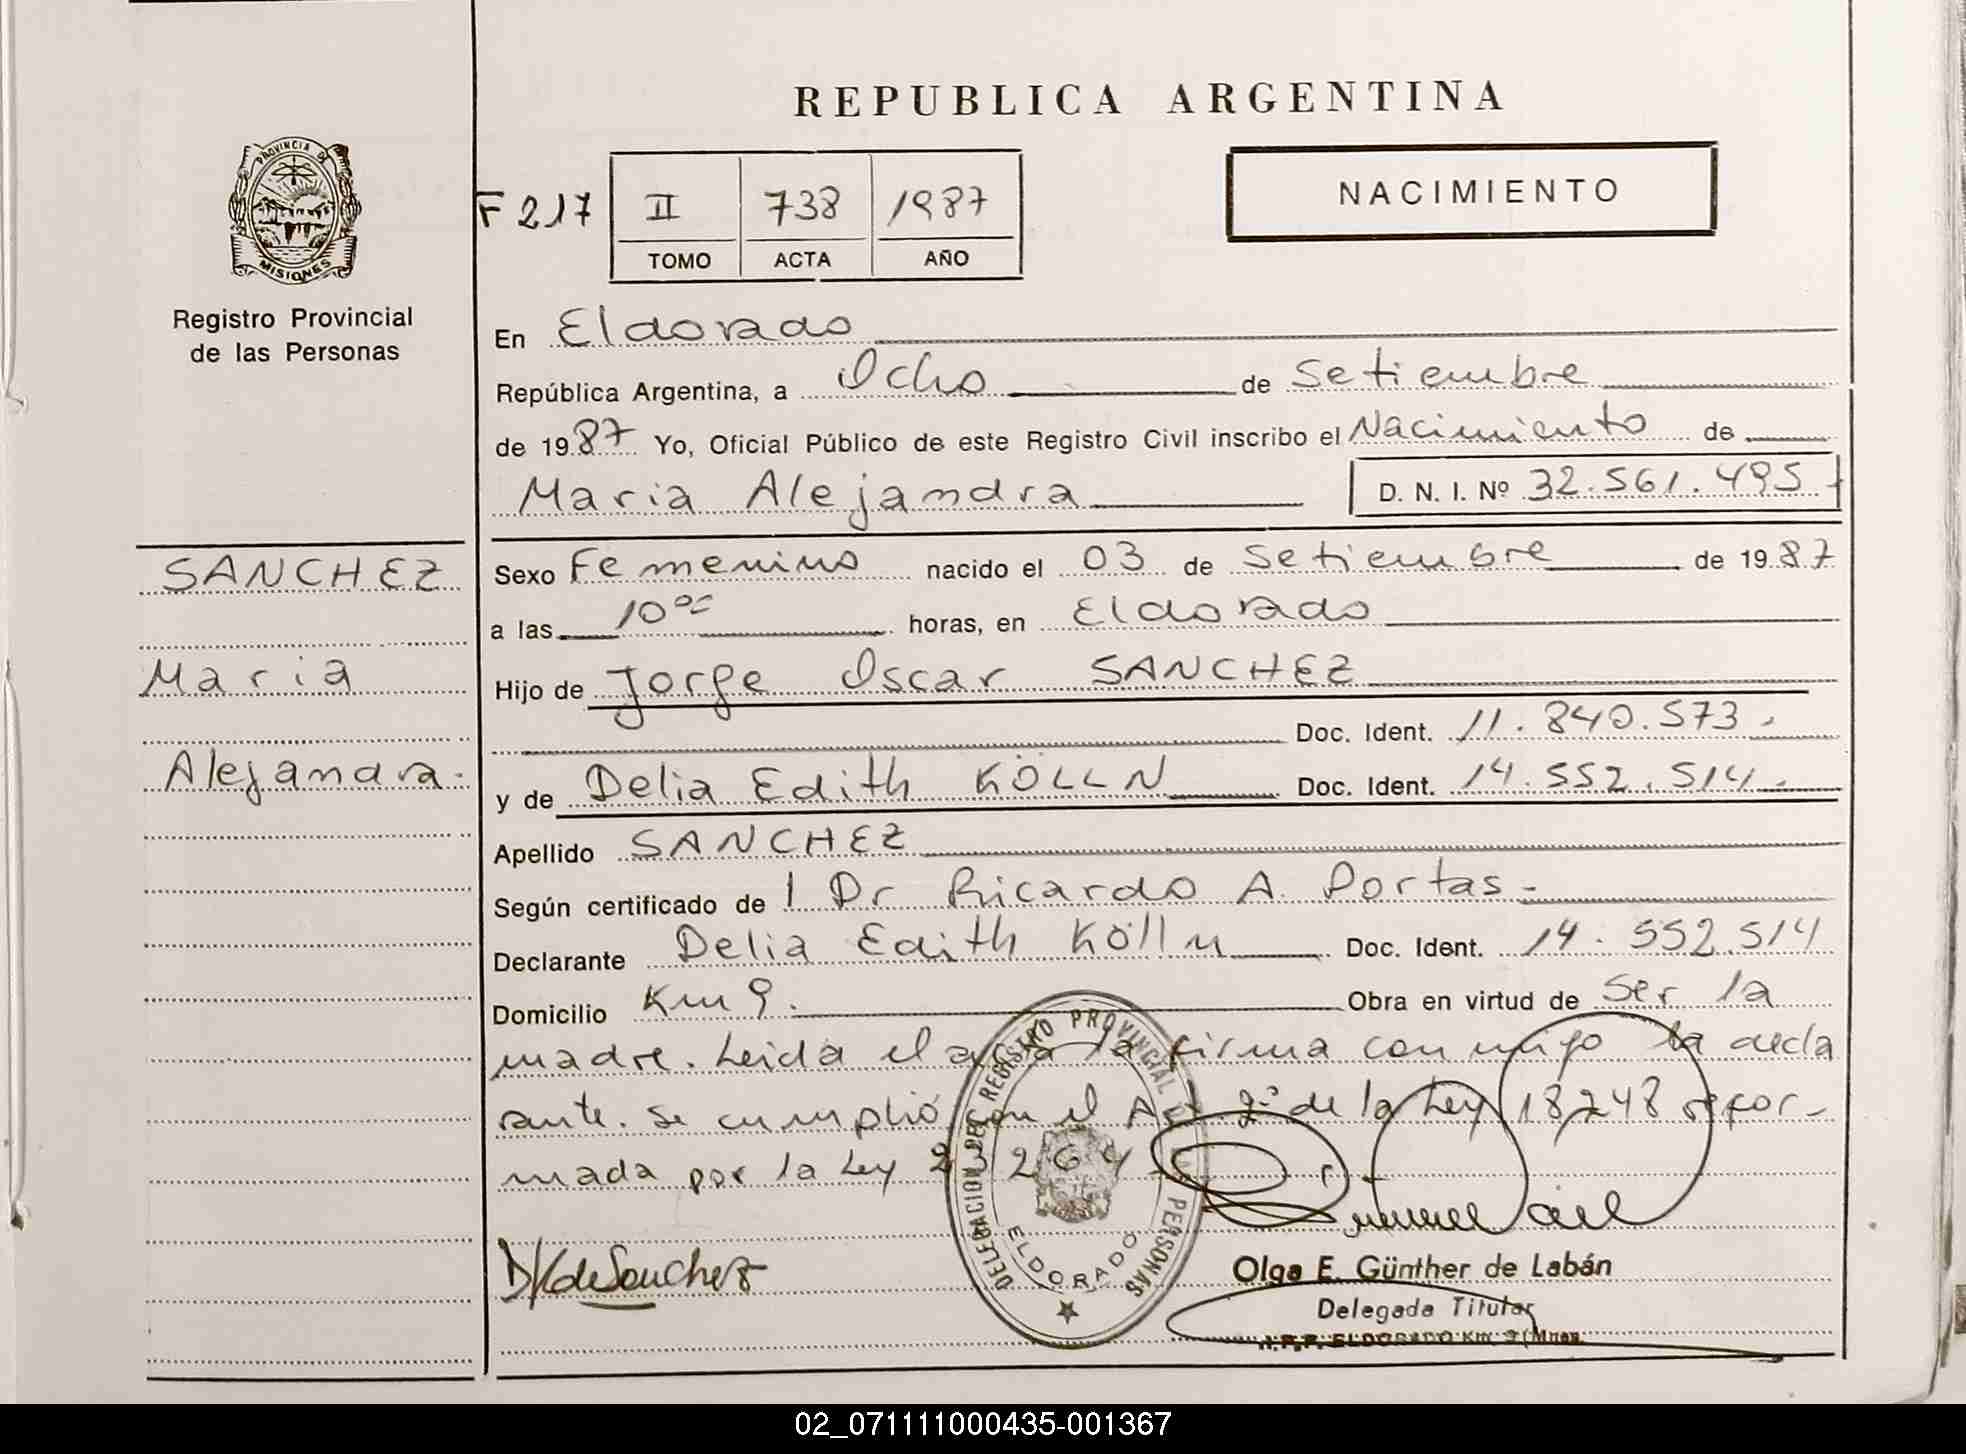 REPUBLICA ARGENTINA
PROVINCIA DE
MISIONES
Registro Provincial
de las Personas
F 217
II 738 1987
TOMO ACTA AÑO
NACIMIENTO
En Eldorado
República Argentina, a Ocho de Setiembre
de 1987 Yo, Oficial Público de este Registro Civil inscribo el Nacimiento de
Maria Alejandra D. N. I. Nº 32.561.495
SANCHEZ
Maria
Alejandra.
Sexo Femenino nacido el 03 de Setiembre de 1987
a las 10 oo horas, en Eldorado
Hijo de Jorge Oscar SANCHEZ
Doc. Ident. 11.840.573.
y de Delia Edith KÖLLN Doc. Ident. 14.552.514.
Apellido SANCHEZ
Según certificado de l Dr Ricardo A. Portas-
Declarante Delia Edith Kölln Doc. Ident. 14.552.514
Domicilio Km 9. Obra en virtud de Ser la
madre. Leida el acta la firma con migo la decla
rante. Se cumplió con el Art. 2º de la Ley 18248 refor-
mada por la Ley 23264
DELEGACION DEL REGISTRO PROVINCIAL DE PERSONAS
ELDORADO
DK de Sanchez
Olga E. Günther de Labán
Delegada Titular
ELDORADO Km. 9 (Mnes.
02_071111000435-001367